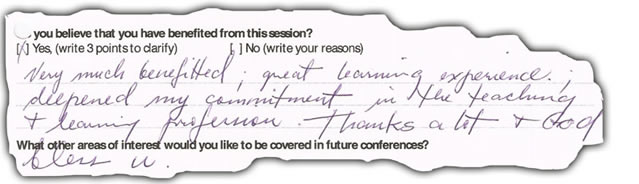 you believe that you have benefited from this session?
[/] Yes, (write 3 points to clarify) [ ] No (write your reasons)
Very much benefitted; great learning experience.;
deepened my commitment in the teaching
+ learning profession. Thanks a lot + God
What other areas of interest would you like to be covered in future conferences?
bless u.